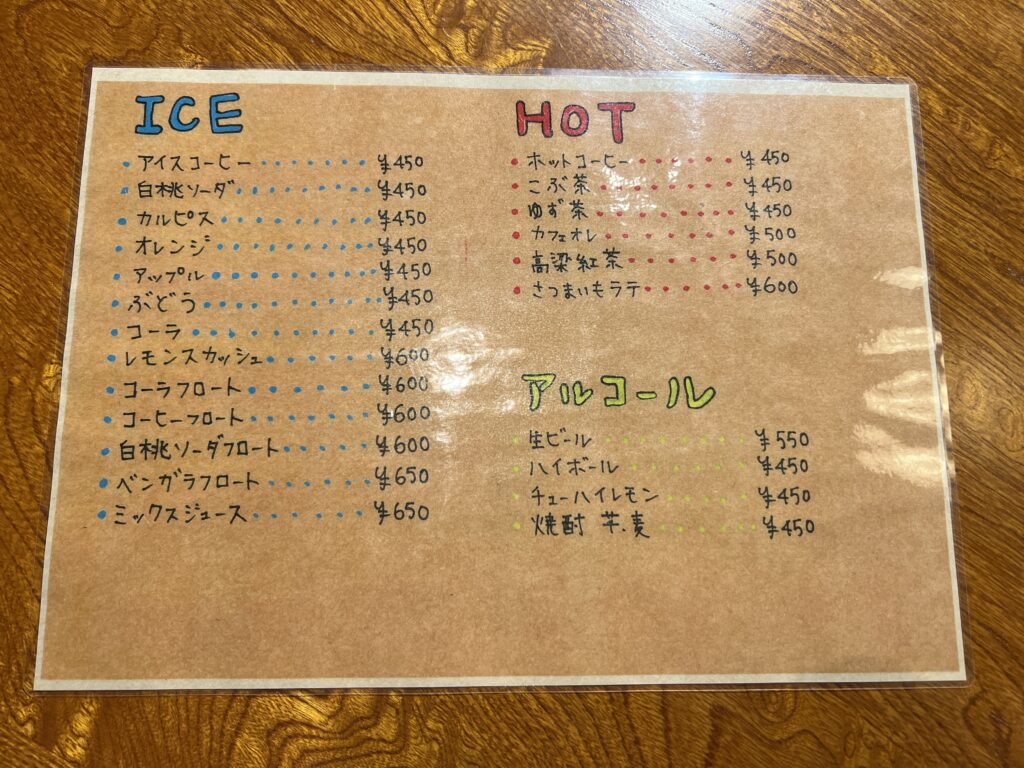 ICE
・アイスコーヒー・・・・・・・・¥450
・白桃ソーダ・・・・・・・・・¥450
・カルピス・・・・・・・・・・¥450
・オレンジ・・・・・・・・・・¥450
・アップル・・・・・・・・・・¥450
・ぶどう・・・・・・・・・・・¥450
・コーラ・・・・・・・・・・¥450
・レモンスカッシュ・・・・・・¥600
・コーラフロート・・・・・・・¥600
・コーヒーフロート・・・・・・¥600
・白桃ソーダフロート・・・・・¥600
・ベンガラフロート・・・・・・¥650
・ミックスジュース・・・・・・・¥650
HOT
・ホットコーヒー・・・・・・¥450
・こぶ茶・・・・・・・・¥450
・ゆず茶・・・・・・・・¥450
・カフェオレ・・・・・・・¥500
・高梁紅茶・・・・・・・¥500
・さつまいもラテ・・・・・・¥600
アルコール
・生ビール・・・・・・・・¥550
・ハイボール・・・・・・・¥450
・チューハイレモン・・・・・¥450
・焼酎 芋.麦・・・・・・¥450